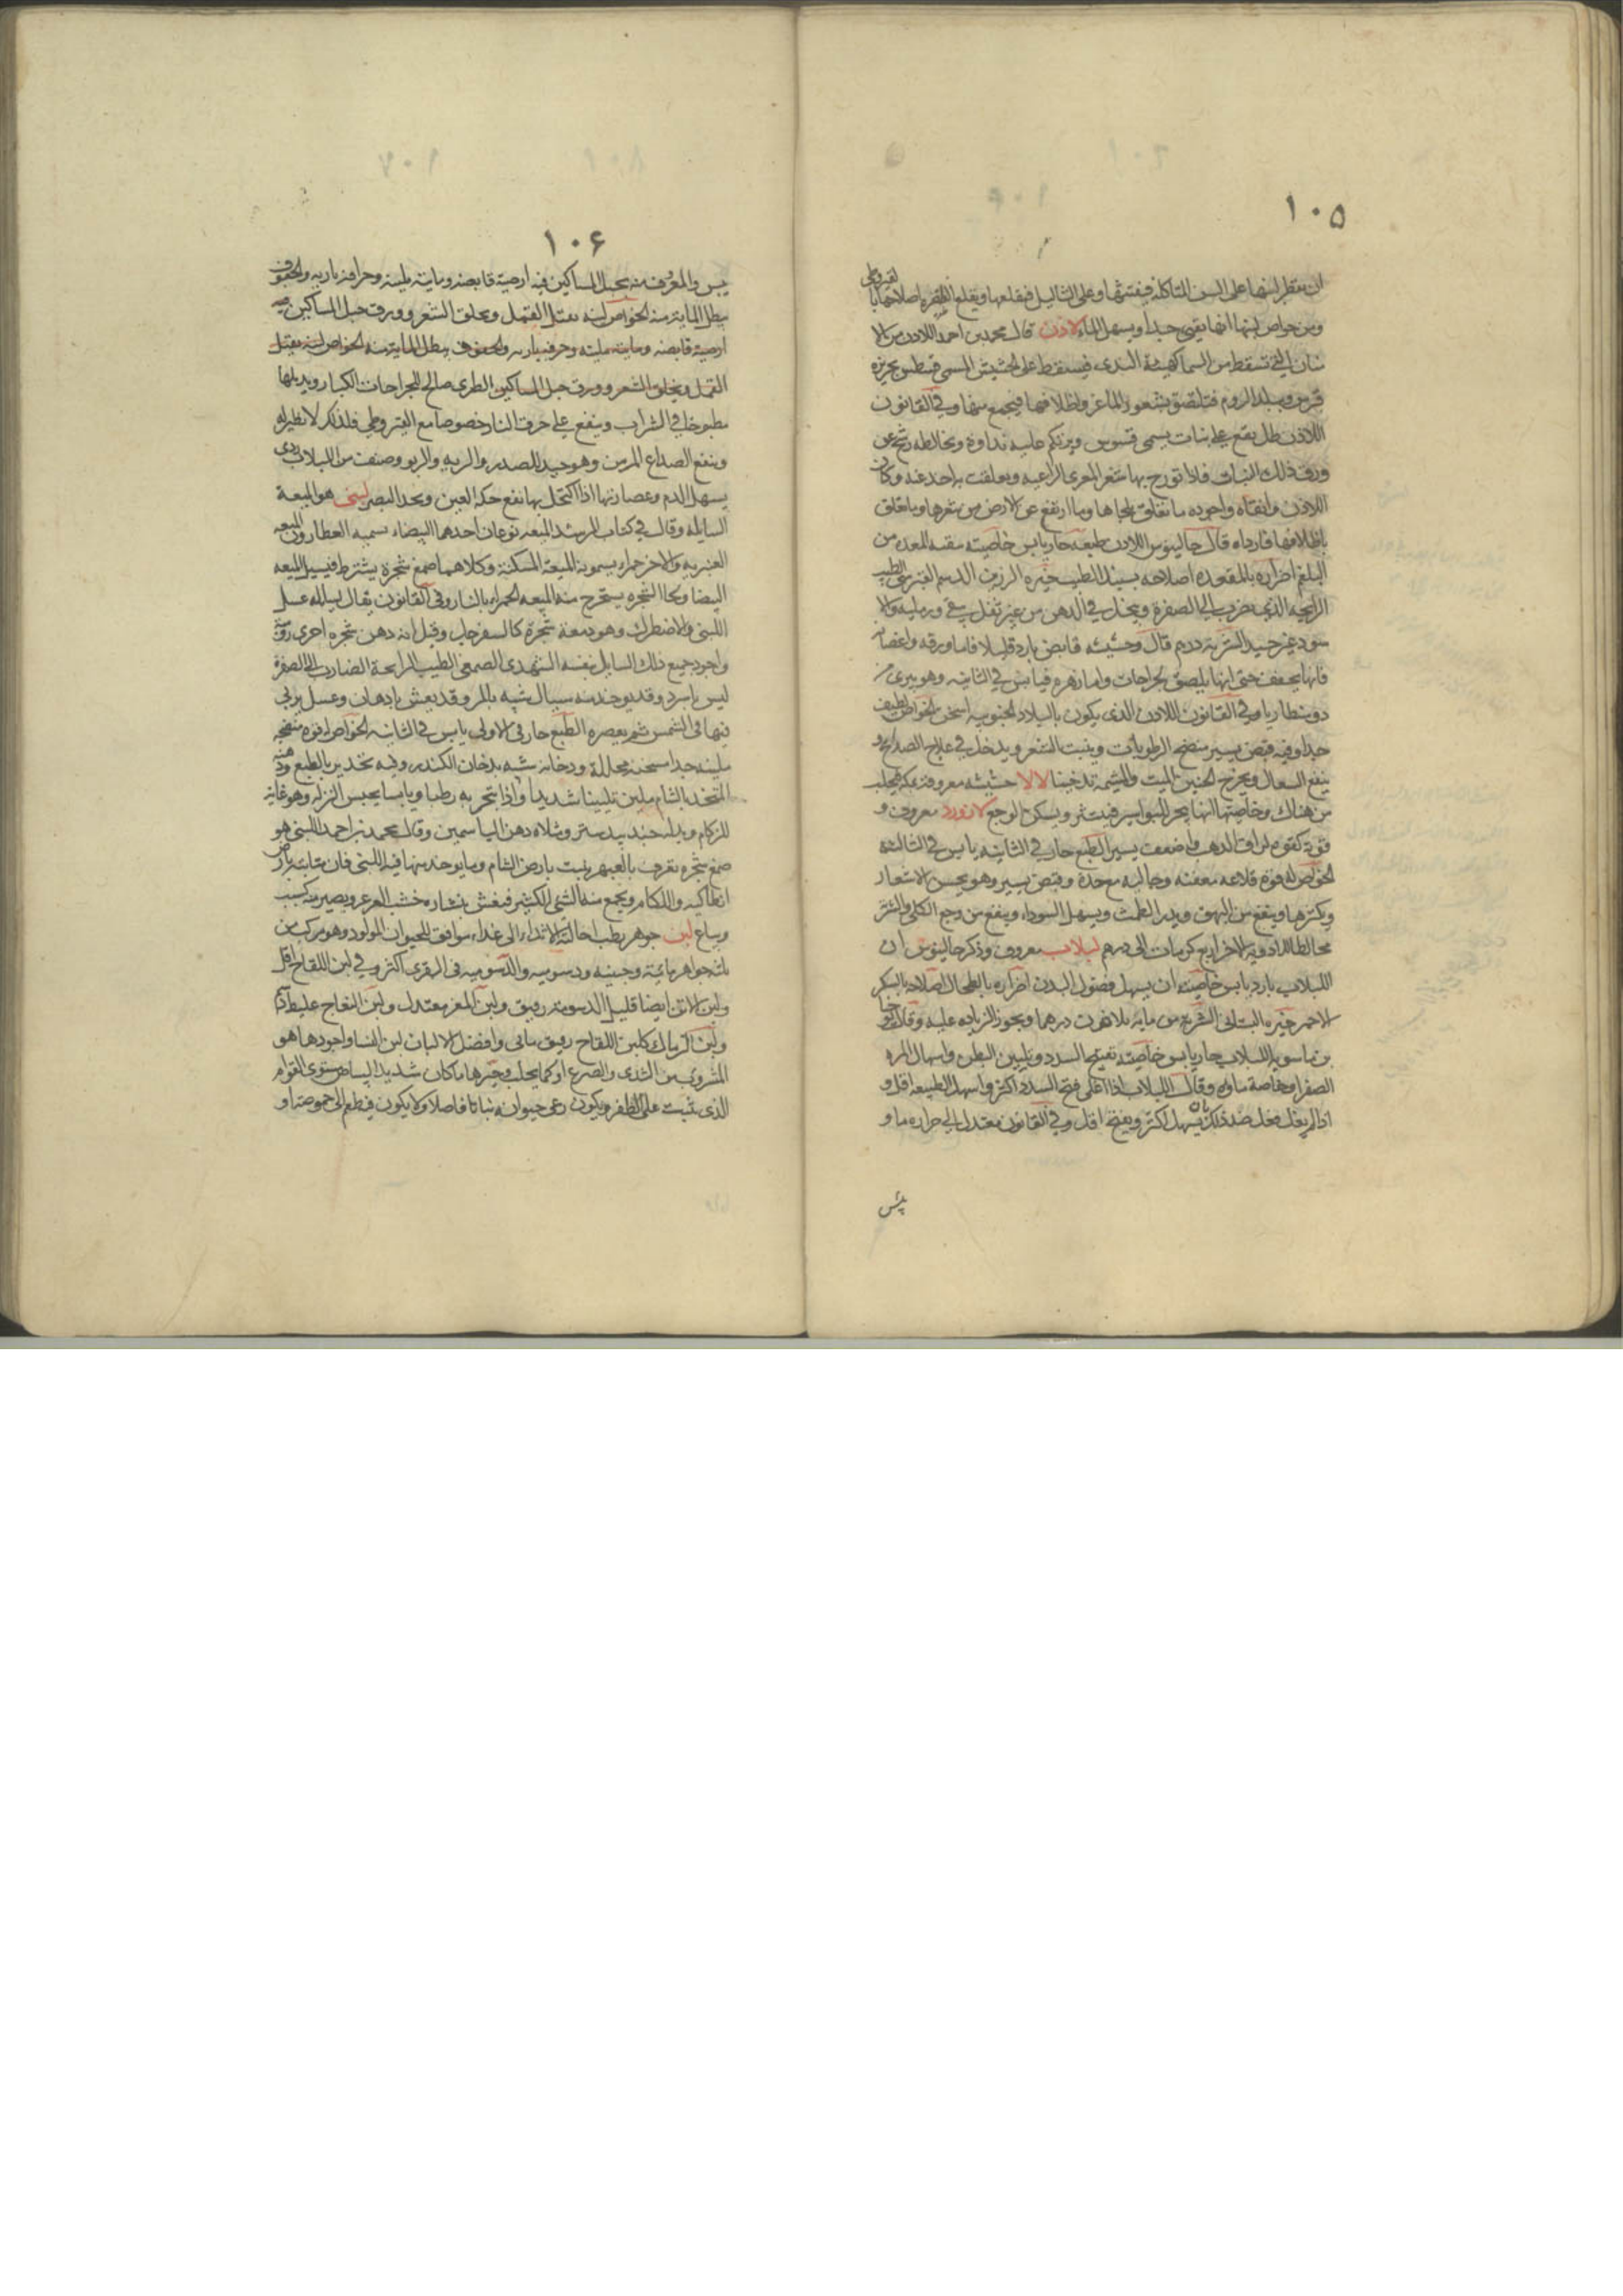 ١٠٥
ان يقطر لبنها على السن المتاكلة فيفتتها وعلى الثاليل فيقلعها ويقلع اصلاحها بالقيروطى
ومن خواص لبنها انها يقيى جدا ويسهل الماء لاذن قال محمد بن احمد اللاذن من الا
التى تسقط من السما كهيئة الندى فيسقط على الحشيش المسمى قستوس بجزيرة
قبرس وببلد الروم فتلتصق بشعور الماعز واظلافها فيجمع منها وفى القانون
اللاذن طل يقع على نبات يسمى قسوس ويرتكم عليه نداوة ويخالطه رشح عن
ورق ذلك النبات فاذا تورج بها شعر المعزى الراعية وتعلقت به اخذ عنه وكان
اللاذن وانقاه واجوده ما تعلق بلحاها وما ارتفع عن الارض من شعرها وما تعلق
باظلافها فارداه قال جالينوس اللاذن طبعه حار يابس خاصيته ينقى المعدة من
البلغم اضراره بالمقعدة اصلاحه بسنبل الطيب خيره الرزين الدسم القبرسى الطيب
الرايحة الذى يضرب الى الصفرة وينحل فى الدهن من غير ثفل يبقى ورمليه والا
سود غير جيد الشربة درهم قال وحشيشه قابض بارد قليلا فاما ورقه واغصانه
فانها يجفف حتى انها يلصق الجراحات واما زهره فيابس فى الثانيه وهو يبرى من
دوسنطاريا وفى القانون اللاذن الذى يكون بالبلاد الجنوبيه اسخن الخواص لطيف
جدا وفيه قبض يسير منضج الرطوبات وينبت الشعر ويدخل فى علاج الصداع و
ينفع السعال ويخرج الجنين الميت والمشيمة تدخينا لالا حشيشه معروفة بمكه يجلب
من هناك وخاصيتها انها يبخر البواسير فينتثر ويسكن الوجع لازورد معروف و
قوته كقوة لزاق الذهب واضعف يسيرا الطبع حار فى الثانيه يابس فى الثالثه
الخواص له قوة قلاعه معفنه وجاليه مع حدة وقبض يسير وهو يحسن الاشعار
ويكثرها وينفع من البهق ويدر الطمث ويسهل السوداء وينفع من وجع الكلى والشربة
مخالطا للادوية الاخر اربع كرمات الى درهم لبلاب معروف وذكر جالينوس ان
اللبلاب بارد يابس خاصيته ان يسهل فضول البدن اضراره بالطحال اصلاحه بالسكر
الاحمر خيره البستانى الشربة من مايه ثلاثون درهما ويجوز الزيادة عليه وقال يوحنا
بن ماسويه اللبلاب حار يابس خاصيته تفتيح السدد وتليين البطن واسهال المره
الصفرا وخاصة ماوه وقال اللبلاب اذا اغلى فتح السدد اكثر واسهل الطبيعه اقل و
اذا لم يغل فعل ضد ذلك بان يسهل اكثر ويفتح اقل وفى القانون معتدل الى حراره ما و
يبس
١٠۶
يبس والمعروف منه بحبل المساكين فيه ارضية قابضه ومايته ملينه وحرافه ناريه والجفوف
يبطل المايته منه الخواص لبنه يقتل القمل ويحلق الشعر وورق حبل المساكين فيه
ارضية قابضه ومايته ملينه وحرافه ناريه والجفوف يبطل المايته منه الخواص لبنه يقتل
القمل ويحلق الشعر وورق حبل المساكين الطرى صالح للجراحات الكبار ويدملها
مطبوخا فى الشراب وينفع على حرق النار خصوصا مع القيروطى فلذلك لا نظير له
وينفع الصداع المزمن وهو جيد للصدر والريه والربو وصنف من اللبلاب ردى
يسهل الدم وعصارتها اذا اكتحل بها نفع حكة العين ويحد البصر لبنى هو الميعة
السايله وقال فى كتاب المرشد الميعه نوعان احدهما البيضاء يسميه العطارون الميعه
العنبريه والاخر حمراء يسمونه الميعة المسكنة وكلاهما صمغ شجرة يشترط فيسيل الميعه
البيضا ولحا الشجره يستخرج منه الميعه الحمراء بالنار وفى القانون يقال لسيلانه عسل
اللبنى والاصطرك وهو دمعة شجرة كالسفرجل وقيل انه دهن شجره اخرى روميه
واجود جميع ذلك السايل بنفسه الشهدى الصمغى الطيب الرايحة الضارب الى الصفرة
ليس باسود وقد يوجد منه سيال شبيه بالمر وقد يغش بادهان وعسل يربى
فيها فى الشمس ثم يعصره الطبع حار فى الاولى يابس فى الثانيه الخواص له قوه منضجه
ملينه جدا مسخنه محللة ودخانه شبيه بدخان الكندر وفيه تخدير بالطبع ودهنه
المتخذ بالشام ملين تليينا شديدا واذا تبخر به رطبا ويابسا يحبس النزله وهو غاية
للزكام وبدله جندبيدستر ومثلاه دهن الياسمين وقال محمد بن احمد اللبنى هو
صمغ شجره تعرف بالعبهر ينبت بارض الشام وما يوخذ منها فيه اللبنى فان منابته بارض
انطاكيه واللكام ويجمع منه الشى الكثير فيغش بنشاره خشب العرعر ويصير مركسب
ويباع لبن جوهر رطب احالته الاثداء الى غذاء موافق للحيوان المولود وهو مركب من
ثلثه جواهر مائية وجبنيه ودسوميه والدسوميه فى البقرى اكثر وفى لبن اللقاح اقل
ولبن الاتن ايضا قليل الدسومة رقيق ولبن المعز معتدل ولبن النعاج غليظ دسم
ولبن الرماك كلبن اللقاح رقيق مائى وافضل الالبان لبن النسا واجودها هو
المشروب من الثدى والضرع او كما يحلب وخيرها ما كان شديد البياض مستوى القوام
الذى يثبت على الظفر ويكون رعى حيوانه نباتا فاضلا ولا يكون فى طعم الى حموضة او